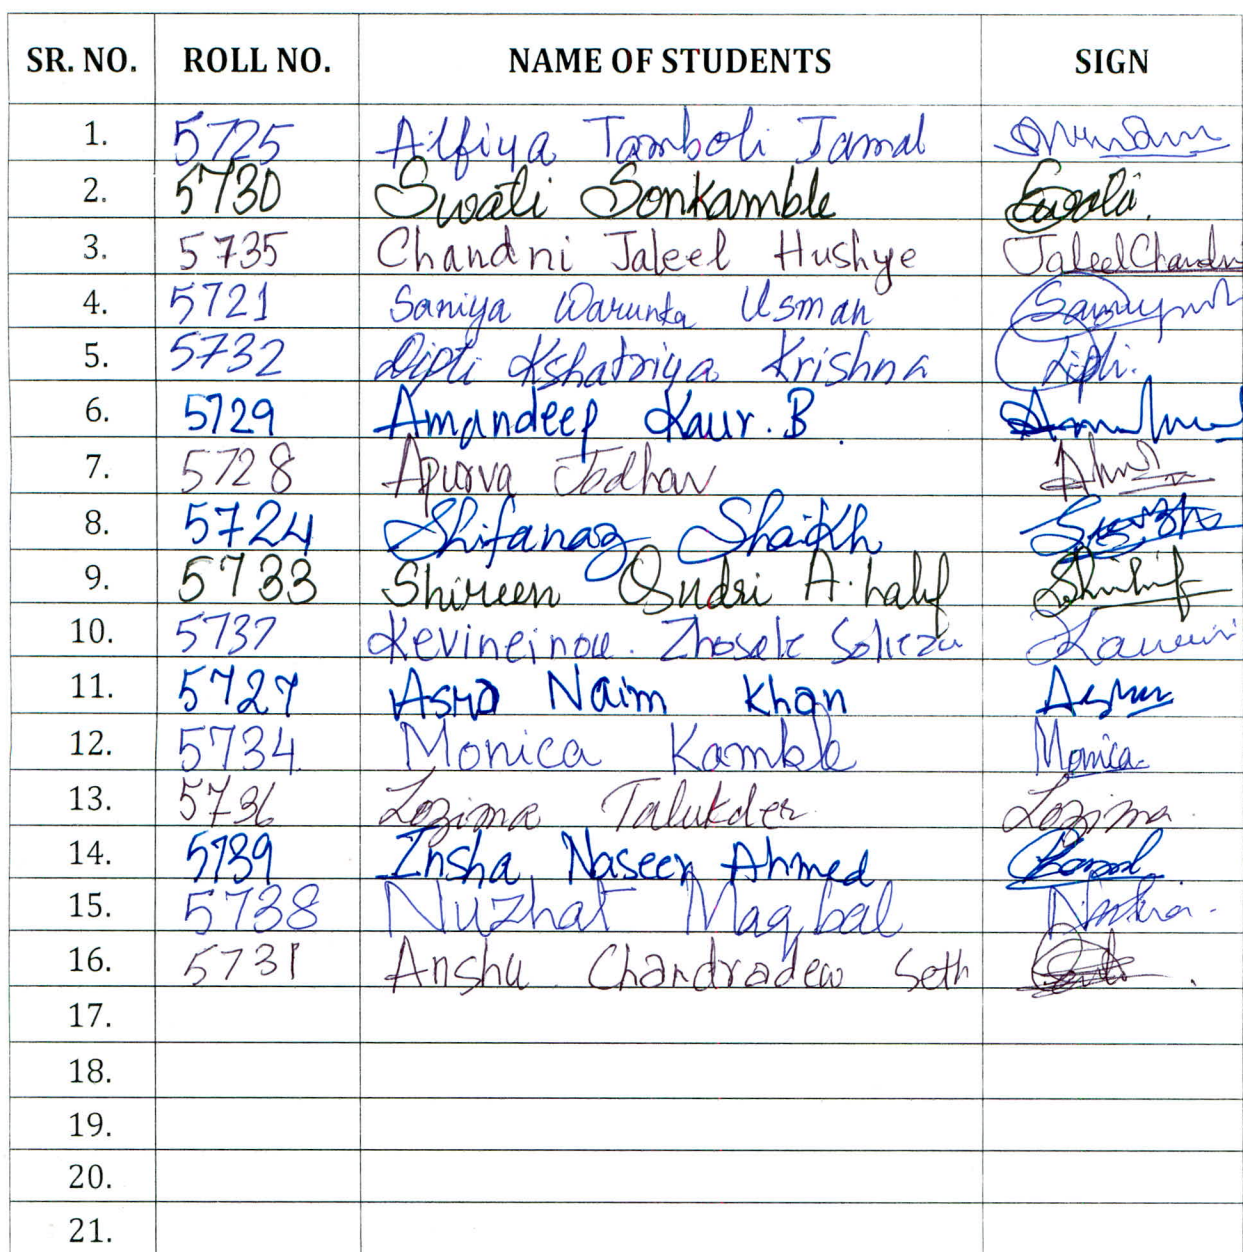 SR. NO. ROLL NO. NAME OF STUDENTS SIGN
1. 5725 Alfiya Tamboli Jamal
2. 5730 Swati Sonkamble Swati.
3. 5735 Chandni Jaleel Hushye JaleelChandni
4. 5721 Saniya Warunka Usman
5. 5732 Dipti Kshatriya Krishna Dipti.
6. 5729 Amandeep Kaur. B.
7. 5728 Apurva Jadhav
8. 5724 Shifanaz Shaikh
9. 5733 Shireen Qudri A. halif
10. 5737 Kevineinou. Zhosale
11. 5727 Asma Naim Khan
12. 5734 Monica Kamble Monica.
13. 5736 Lozima Talukder. Lozima.
14. 5739 Insha Naseen Ahmed
15. 5738 Nuzhat Maqbal
16. 5731 Anshu Chandradew Seth
17.
18.
19.
20.
21.